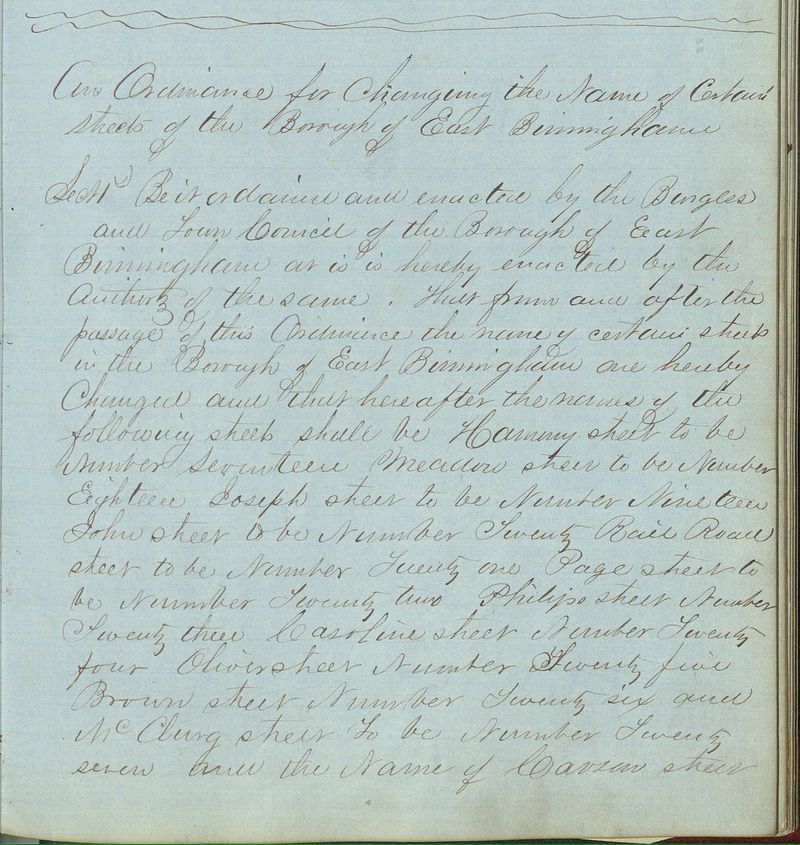 An Ordinance for Changing the Name of Certain
streets of the Borough of East Birmingham
Sect 1 Be it ordained and enacted by the Burgess
and Town Council of the Borough of East
Birmingham as is is hereby enacted by the
Authority of the same. That from and after the
passage of this Ordinance the name of certain streets
in the Borough of East Birmingham are hereby
Changed and that hereafter the names of the
following streets shall be Harmny street to be
Number Seventeen Meadow street to be Number
Eighteen Joseph street to be Number Nineteen
John street to be Number Twenty Rail Road
street to be Number Twenty one Page street to
be Number Twenty two Philips street Number
Twenty three Caroline street Number Twenty
four Oliver street Number Twenty five
Brown street Number Twenty six and
McClurg street To be Number Twenty
seven and the Name of Carson street